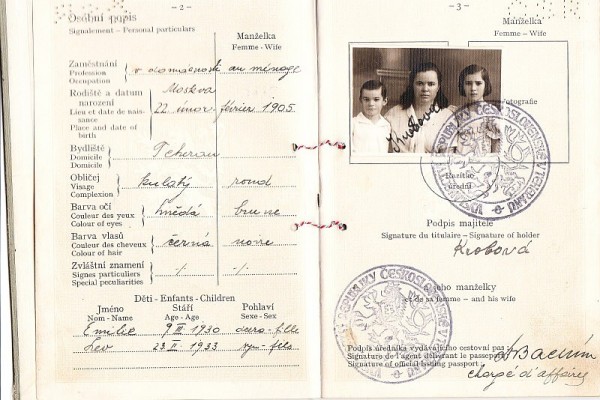 — 2 —
Osobní popis
Signalement — Personal particulars
Manželka
Femme - Wife
Zaměstnání
Profession
Occupation
v domácnosti au ménage
Rodiště a datum
narození
Lieu et date de nais-
sance
Place and date of
birth
Moskva
22 únor - février 1905.
Bydliště
Domicile
Domicile
Teheran
Obličej
Visage
Complexion
kulatý rond
Barva očí
Couleur des yeux
Colour of eyes
hnědá brune
Barva vlasů
Couleur des cheveux
Colour of hair
černá noire
Zvláštní znamení
Signes particuliers
Special peculiarities
-/. -/.
Děti - Enfants - Children
Jméno
Nom - Name
Stáří
Age - Age
Pohlaví
Sexe - Sex
Emilie 9 III 1930 dcera - fille
Lev 23 II 1933 syn - fils
— 3 —
Manželka
Femme - Wife
Krobová
Razítko
úřední
Podpis majitele
Signature du titulaire — Signature of holder
Krobová
a jeho manželky
et de sa femme — and his wife
Podpis úředníka vydávajícího cestovní pas
Signature de l'agent délivrant le passeport
Signature of official issuing passport
chargé d'affaires